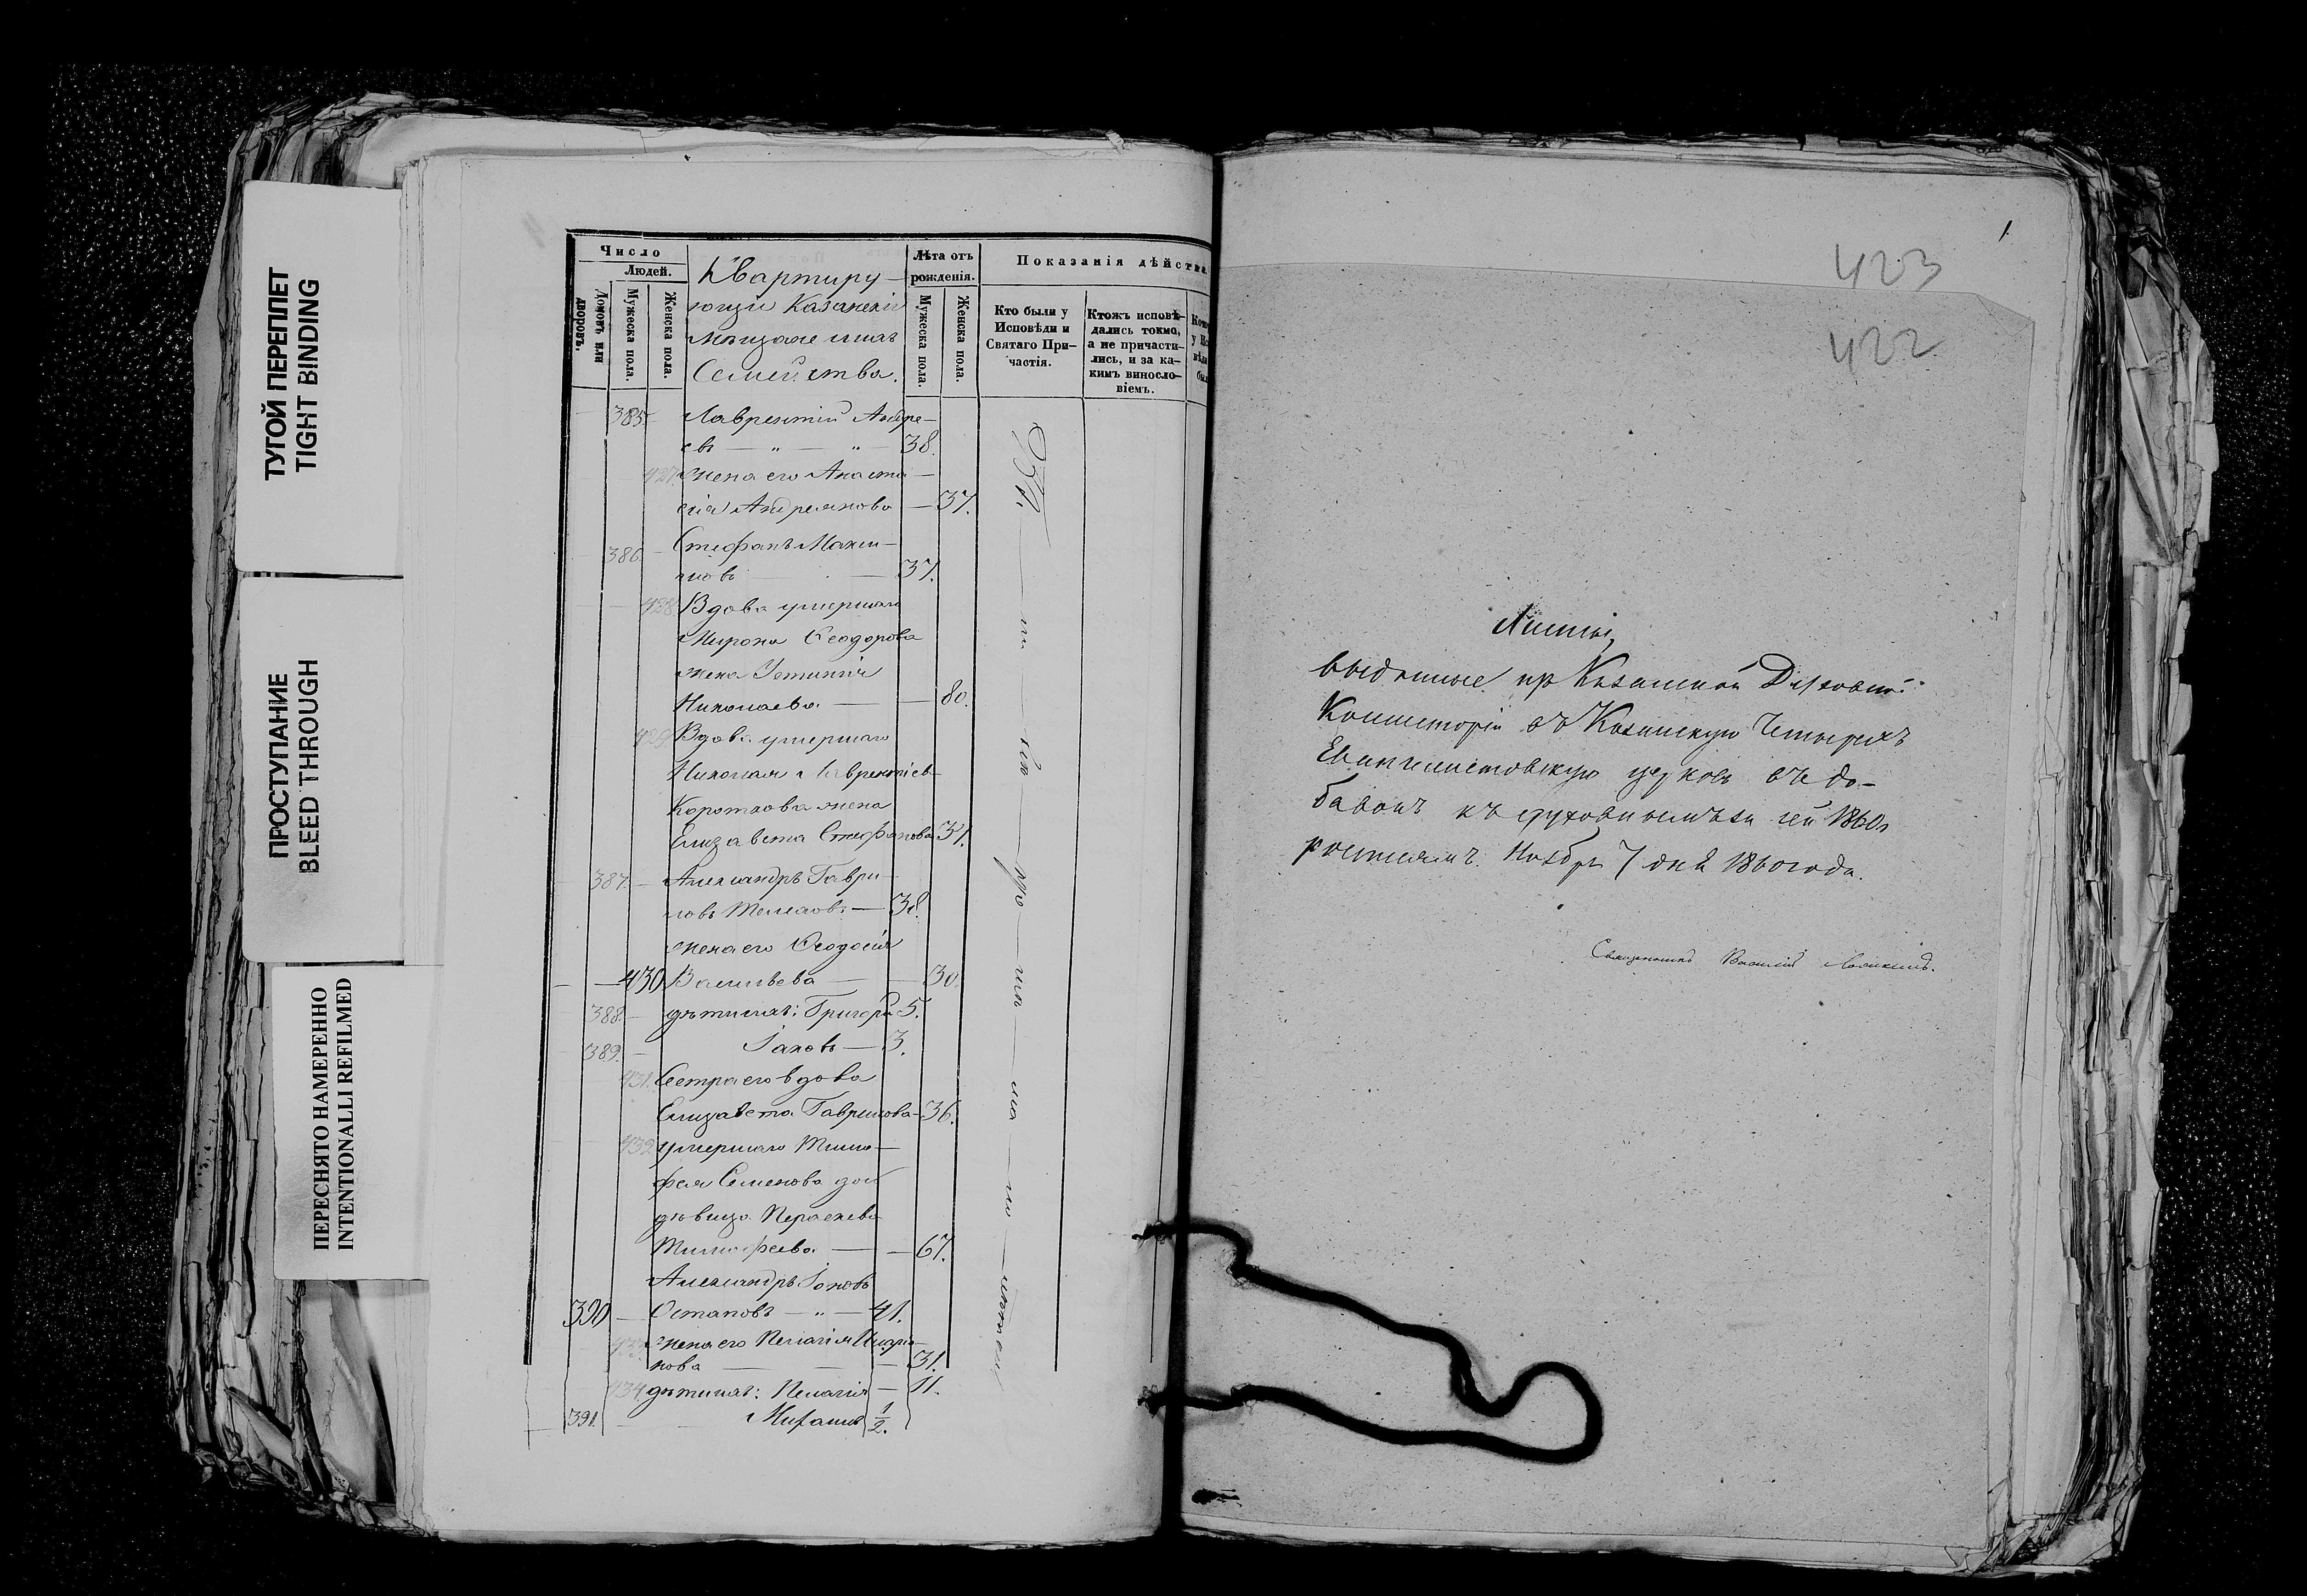 ТУГОЙ ПЕРЕПЛЕТ
TIGHT BINDING
ПРОСТУПАНИЕ
BLEED THROUGH
ПЕРЕСНЯТО НАМЕРЕННО
INTENTIONALLI REFILMED
Число
Людей.
Домовъ или дворовъ.
Мужеска пола.
Женска пола.
Квартиру-
ющіи Казанскіи
Мѣщане и ихъ
Семейства.
Лѣта отъ рожденія.
Мужеска пола.
Женска пола.
Показанія дѣйства
Кто были у Исповѣди и Святаго При-частія.
Ктожъ исповѣ-дались токмо, а не причасти-лись, и за ка-кимъ винос­ло-віемъ.
385. Лаврентій Андре-
евъ — „ — „ — 38.
427. жена его Анаста-
сія Андреянова — 37.
386. Стефанъ Макси-
мовъ — 37.
428. Вдова умершаго
Мирона Ѳеодорова
жена Устинія
Николаева — 80.
429. Вдова умершаго
Николая Лаврентіев-
Короткова жена
Елизавета Стефанова 31.
387. Александръ Гаври-
ловъ — 38.
жена его Ѳеодосія
430 Васильева — 30.
388. дѣти ихъ: Григорій 5.
389. Іаковъ — 3.
431. Сестра его вдова
Елизавета Гаврилова 36.
432 умершаго Тимо-
фея Семенова дочь
дѣвица Параскева
Тимофеева — 67.
Александръ Іоновъ
390 — Остаповъ — „ — 41.
433 жена его Пелагія
нова — 31.
434 дѣти ихъ: Пелагія — 11.
391. Михаилъ 1/2.
1.
423
422
Листы,
выданные при Казанской Духовной
Консисторіи въ Казанскую Четырехъ
Евангелистовскую церковь въ до-
бавокъ къ духовнымъ сей 1860 г
росписямъ. Ноября 7 дня 1860 года.
Священникъ Василій